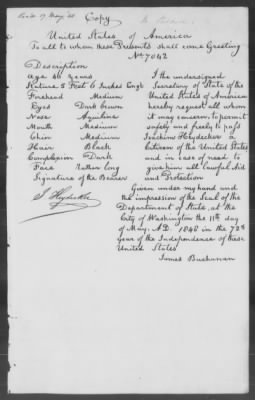 Copy
United States of America
To all to whom these Presents shall come Greeting
No 7042
Description
Age 46 years
Stature 5 Feet 6 Inches Engl
Forehead Medium
Eyes Dark brown
Nose Aquiline
Mouth Medium
Chin Medium
Hair Black
Complexion Dark
Face Rather long
Signature of the Bearer
J Heydecker
I the undersigned
Secretary of State of the
United States of America
hereby request all whom
it may concern, to permit
safely and freely to pass
Joachim Heydecker a
Citizen of the United States
and in case of need to
give him all Lawful Aid
and Protection
Given under my hand and
the impression of the Seal of the
Department of State, at the
City of Washington the 11th day
of May, A.D. 1848 in the 72d
year of the Independence of these
United States
James Buchanan